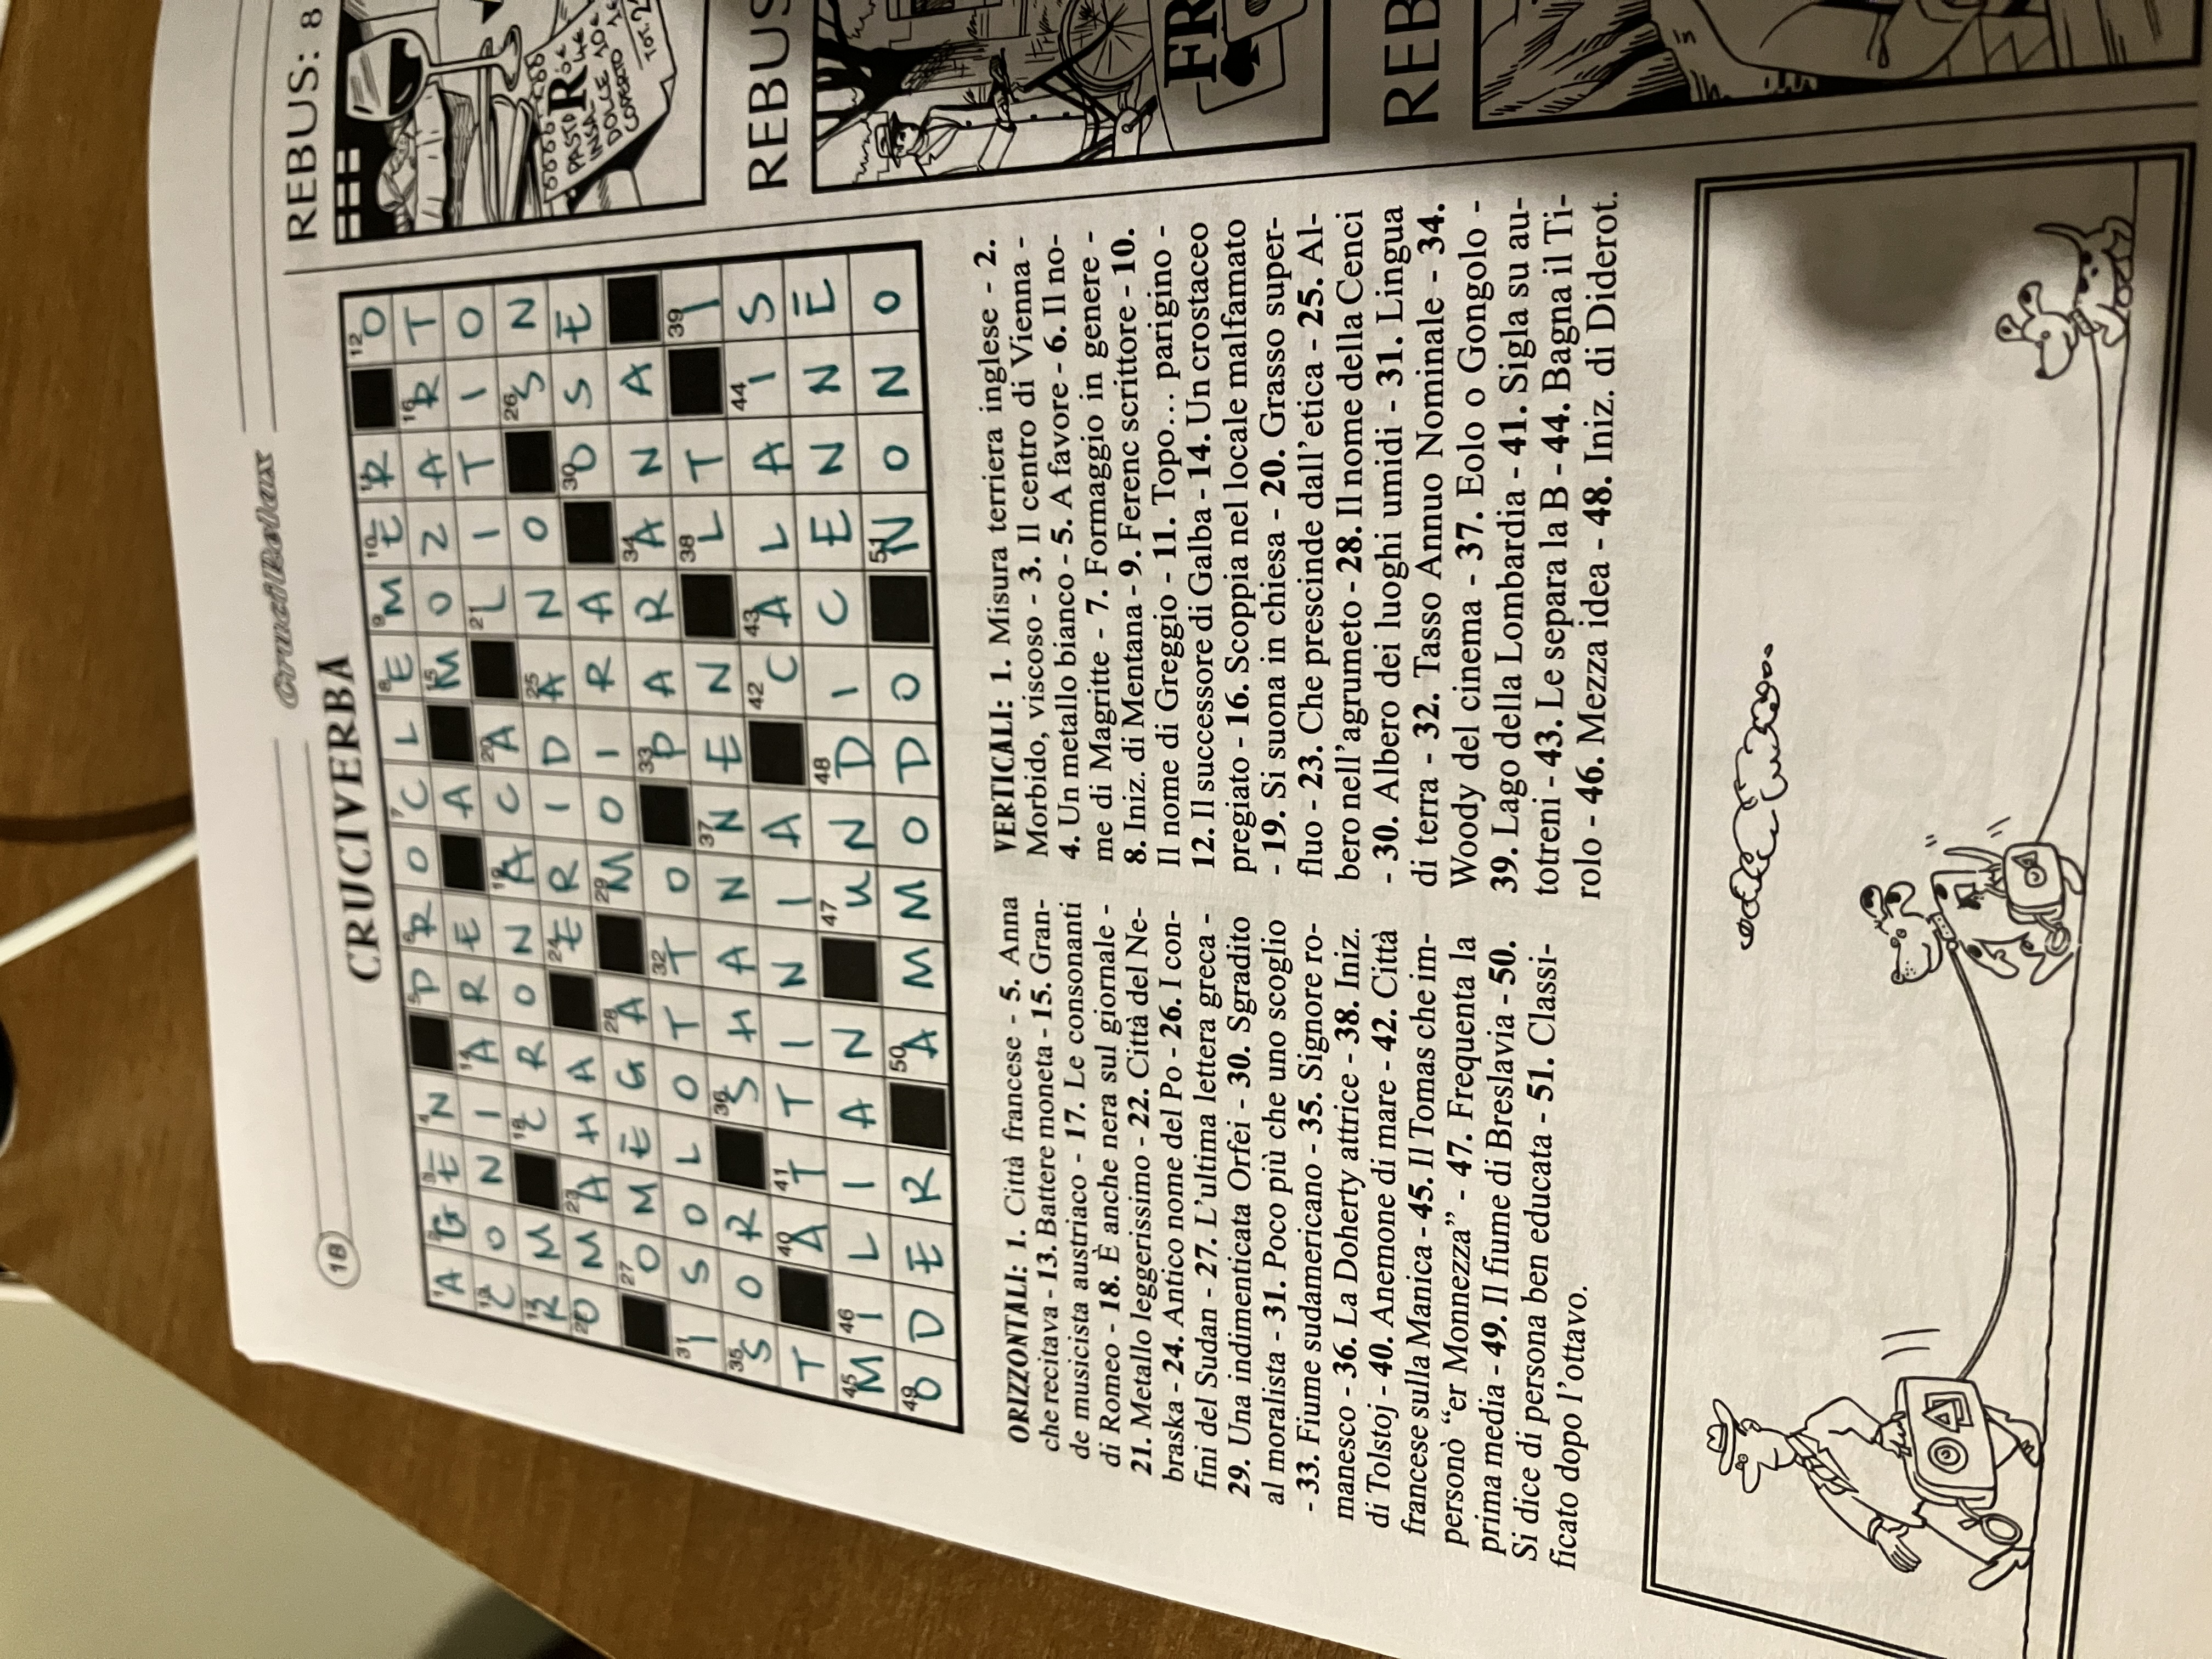 CruciRelax
18
CRUCIVERBA
REBUS: 8
1 A 2 G 3 E 4 N 5 P 6 R O 7 C L 8 E 9 M 10 E 11 R 12 O
13 C O N I 14 A R E A 15 M O Z A 16 R T
17 R M 18 C R O N 19 A C 20 A 21 L I T I O
22 O M 23 A H A 24 E R I D 25 A N O 26 S N
27 O M E G 28 A 29 M O I R A 30 O S E
31 I S O L O T 32 T O 33 P A R 34 A N A
35 S O R 36 S H A N 37 N E N 38 L T 39 I
T 40 A 41 T T I N I A 42 C 43 A L A 44 I S
45 M 46 I L I A N 47 U N 48 D I C E N N E
49 O D E R 50 A M M O D O 51 N O N O
ORIZZONTALI: 1. Città francese - 5. Anna
che recitava - 13. Battere moneta - 15. Gran-
de musicista austriaco - 17. Le consonanti
di Romeo - 18. È anche nera sul giornale -
21. Metallo leggerissimo - 22. Città del Ne-
braska - 24. Antico nome del Po - 26. I con-
fini del Sudan - 27. L'ultima lettera greca -
29. Una indimenticata Orfei - 30. Sgradito
al moralista - 31. Poco più che uno scoglio
- 33. Fiume sudamericano - 35. Signore ro-
manesco - 36. La Doherty attrice - 38. Iniz.
di Tolstoj - 40. Anemone di mare - 42. Città
francese sulla Manica - 45. Il Tomas che im-
personò “er Monnezza” - 47. Frequenta la
prima media - 49. Il fiume di Breslavia - 50.
Si dice di persona ben educata - 51. Classi-
ficato dopo l'ottavo.
VERTICALI: 1. Misura terriera inglese - 2.
Morbido, viscoso - 3. Il centro di Vienna -
4. Un metallo bianco - 5. A favore - 6. Il no-
me di Magritte - 7. Formaggio in genere -
8. Iniz. di Mentana - 9. Ferenc scrittore - 10.
Il nome di Greggio - 11. Topo… parigino -
12. Il successore di Galba - 14. Un crostaceo
pregiato - 16. Scoppia nel locale malfamato
- 19. Si suona in chiesa - 20. Grasso super-
fluo - 23. Che prescinde dall'etica - 25. Al-
bero nell'agrumeto - 28. Il nome della Cenci
- 30. Albero dei luoghi umidi - 31. Lingua
di terra - 32. Tasso Annuo Nominale - 34.
Woody del cinema - 37. Eolo o Gongolo -
39. Lago della Lombardia - 41. Sigla su au-
totreni - 43. Le separa la B - 44. Bagna il Ti-
rolo - 46. Mezza idea - 48. Iniz. di Diderot.
PASTO
INSA
DOLCE 10€
COPERTO
TOT.
R
REBUS
FR
REB